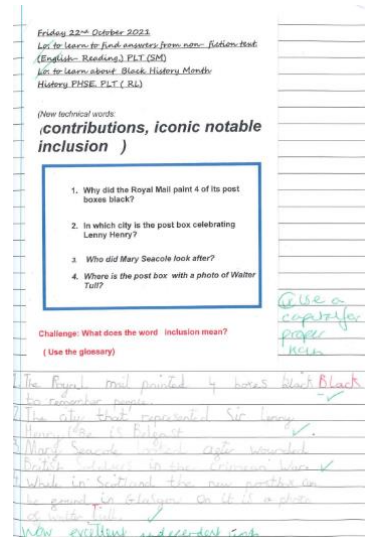 Friday 22nd October 2021
Lo: to learn to find answers from non-fiction text
(English- Reading.) PLT (SM)
Lo: to learn about Black History Month
History PHSE. PLT ( RL)
(New technical words:
(contributions, iconic notable
inclusion )
1. Why did the Royal Mail paint 4 of its post
boxes black?
2. In which city is the post box celebrating
Lenny Henry?
3 Who did Mary Seacole look after?
4. Where is the post box with a photo of Walter
Tull?
Use a
capital for
proper
noun
Challenge: What does the word inclusion mean?
( Use the glossary)
1. The Royal mail painted 4 boxes black Black
to remember people.
2. The city that represented Sir Lenny
Henry is Belfast
3. Mary Seacole after wounded
British Soldiers in the Crimean War.
While in Scotland the new postbox can
be found in Glasgow On it is a photo
of Walter Tull.
Wow excellent independent